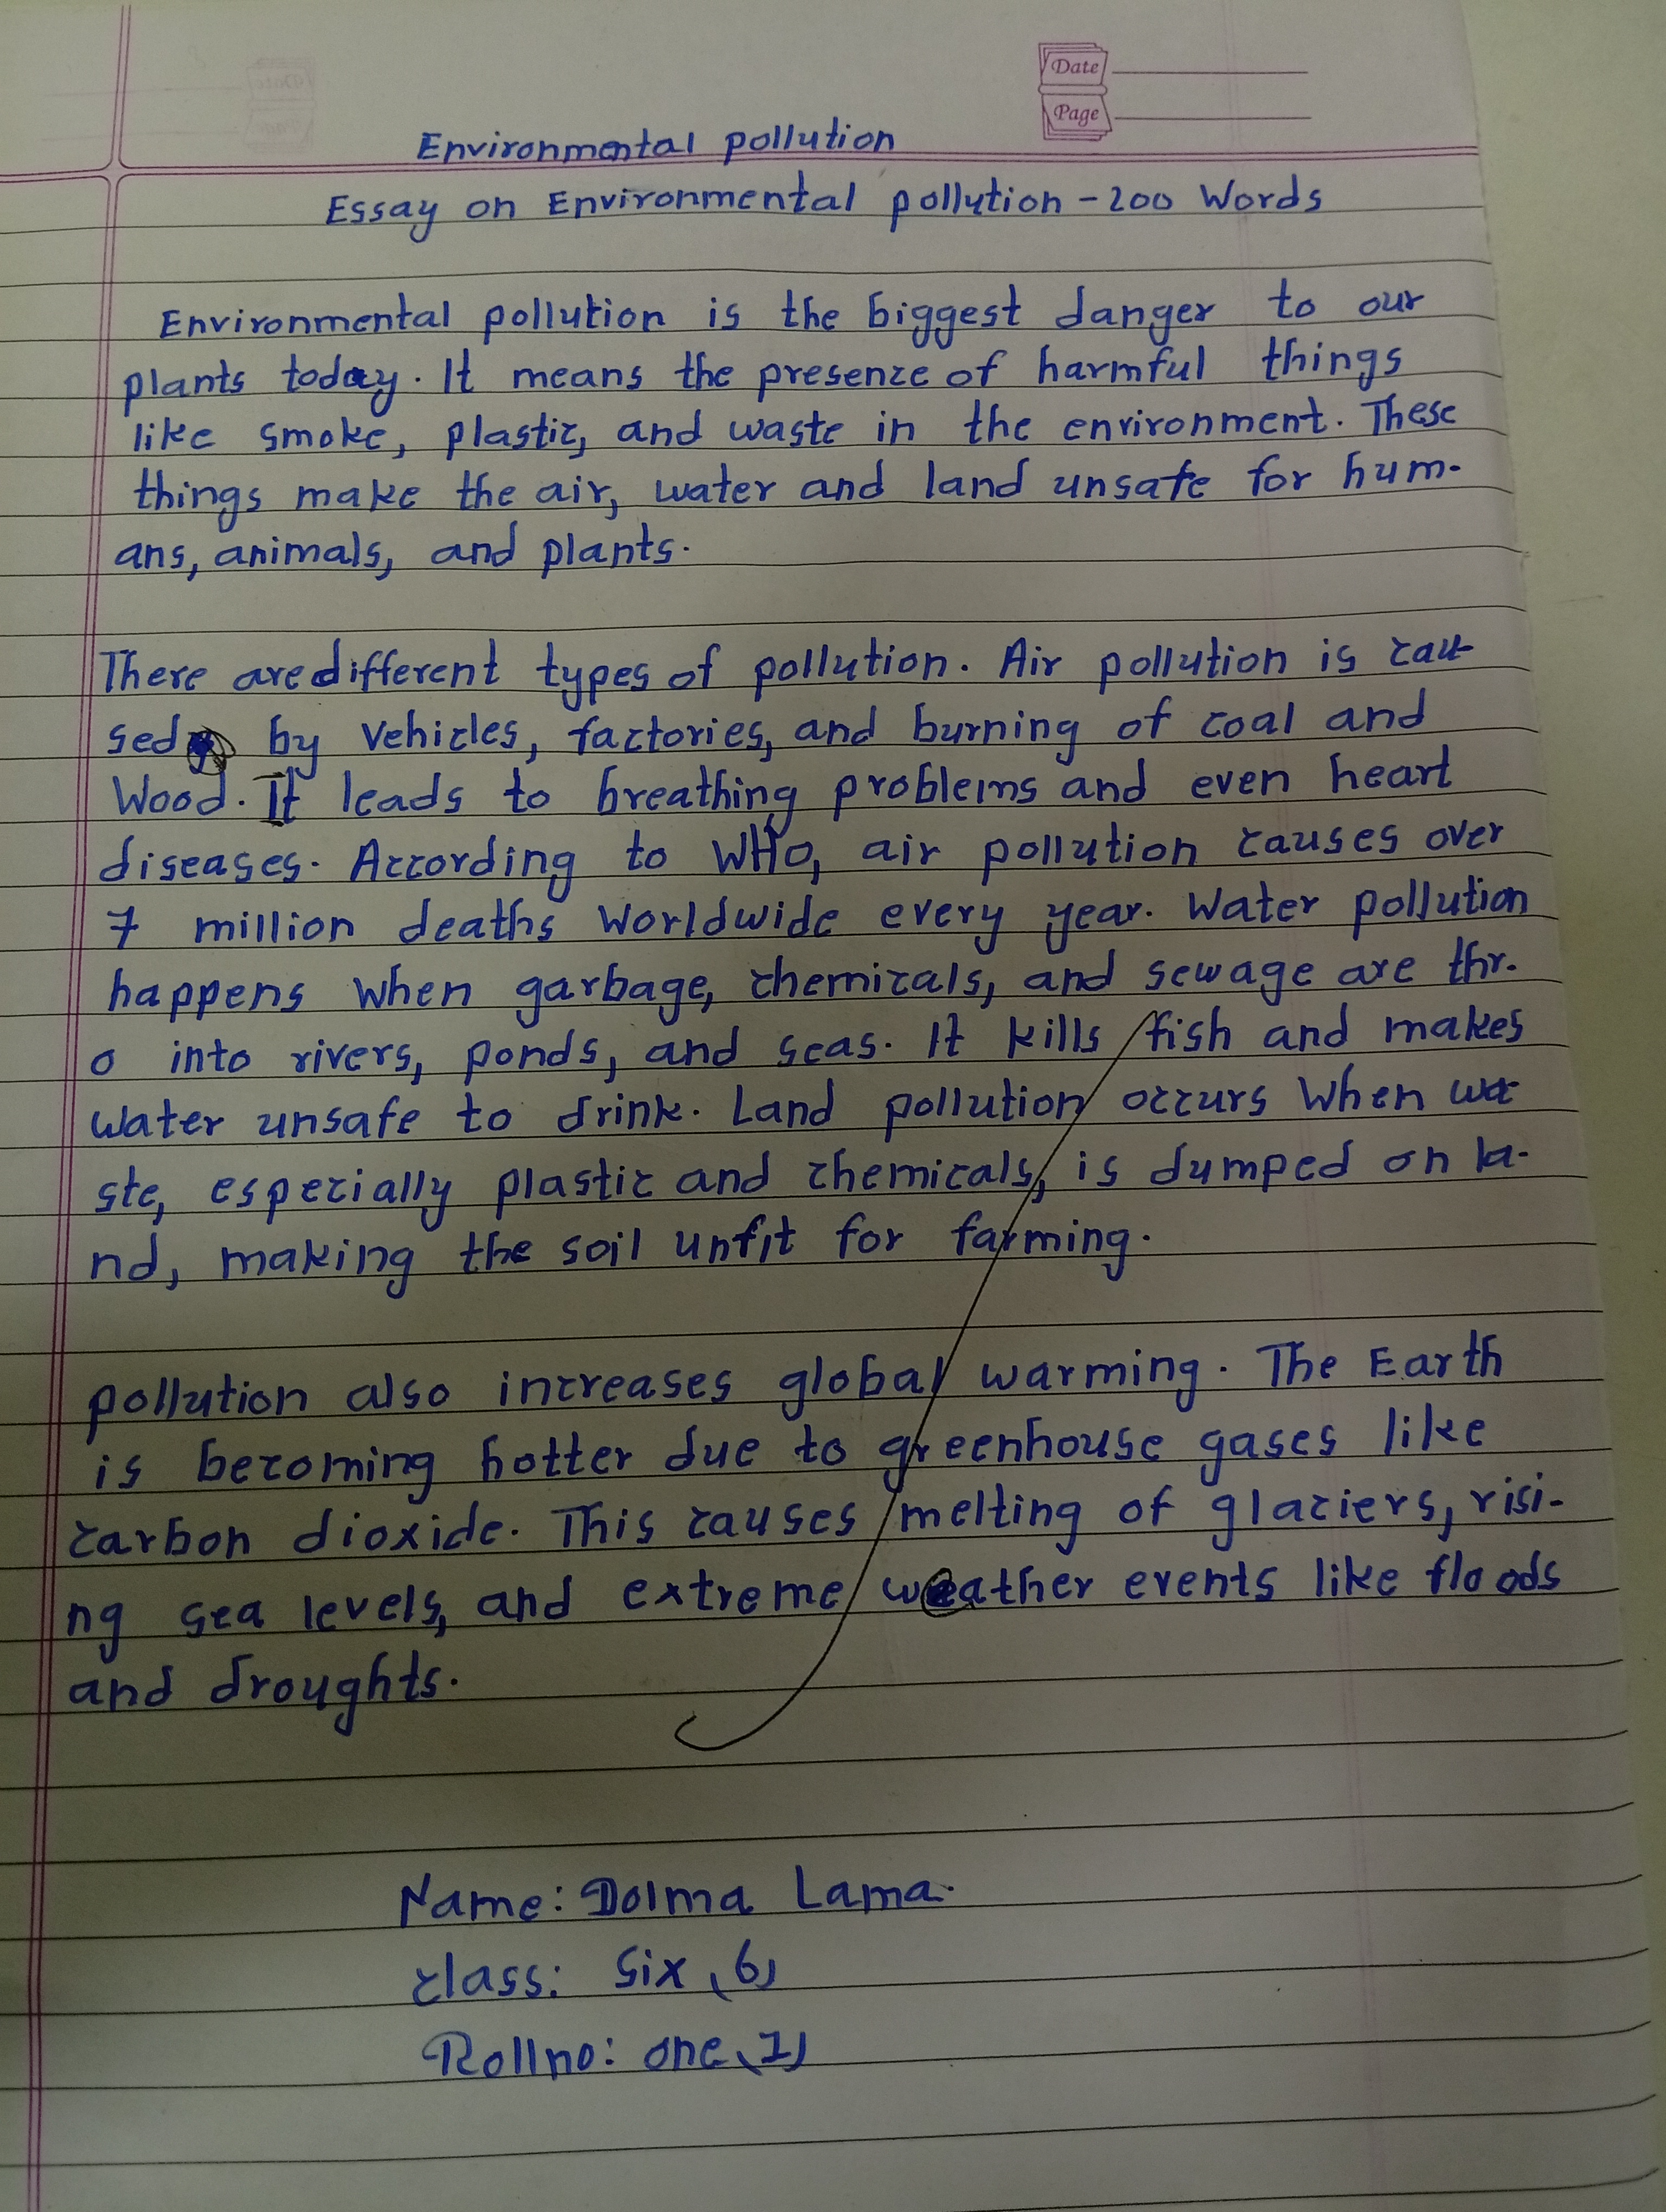 Date
Page
Environmental pollution
Essay on Environmental pollution - 200 Words
Environmental pollution is the biggest danger to our
plants today. It means the presence of harmful things
like smoke, plastic, and waste in the environment. These
things make the air, water and land unsafe for hum-
ans, animals, and plants.
There are different types of pollution. Air pollution is cau-
sed by vehicles, factories, and burning of coal and
Wood. It leads to breathing problems and even heart
diseases. According to WHO, air pollution causes over
7 million deaths worldwide every year. Water pollution
happens when garbage, chemicals, and sewage are thr-
o into rivers, ponds, and seas. It kills fish and makes
water unsafe to drink. Land pollution occurs when wa-
ste, especially plastic and chemicals, is dumped on la-
nd, making the soil unfit for farming.
pollution also increases global warming. The Earth
is becoming hotter due to greenhouse gases like
carbon dioxide. This causes melting of glaciers, risi-
ng sea levels, and extreme weather events like floods
and droughts.
Name: Dolma Lama.
class: Six (6)
Rollno: one (1)